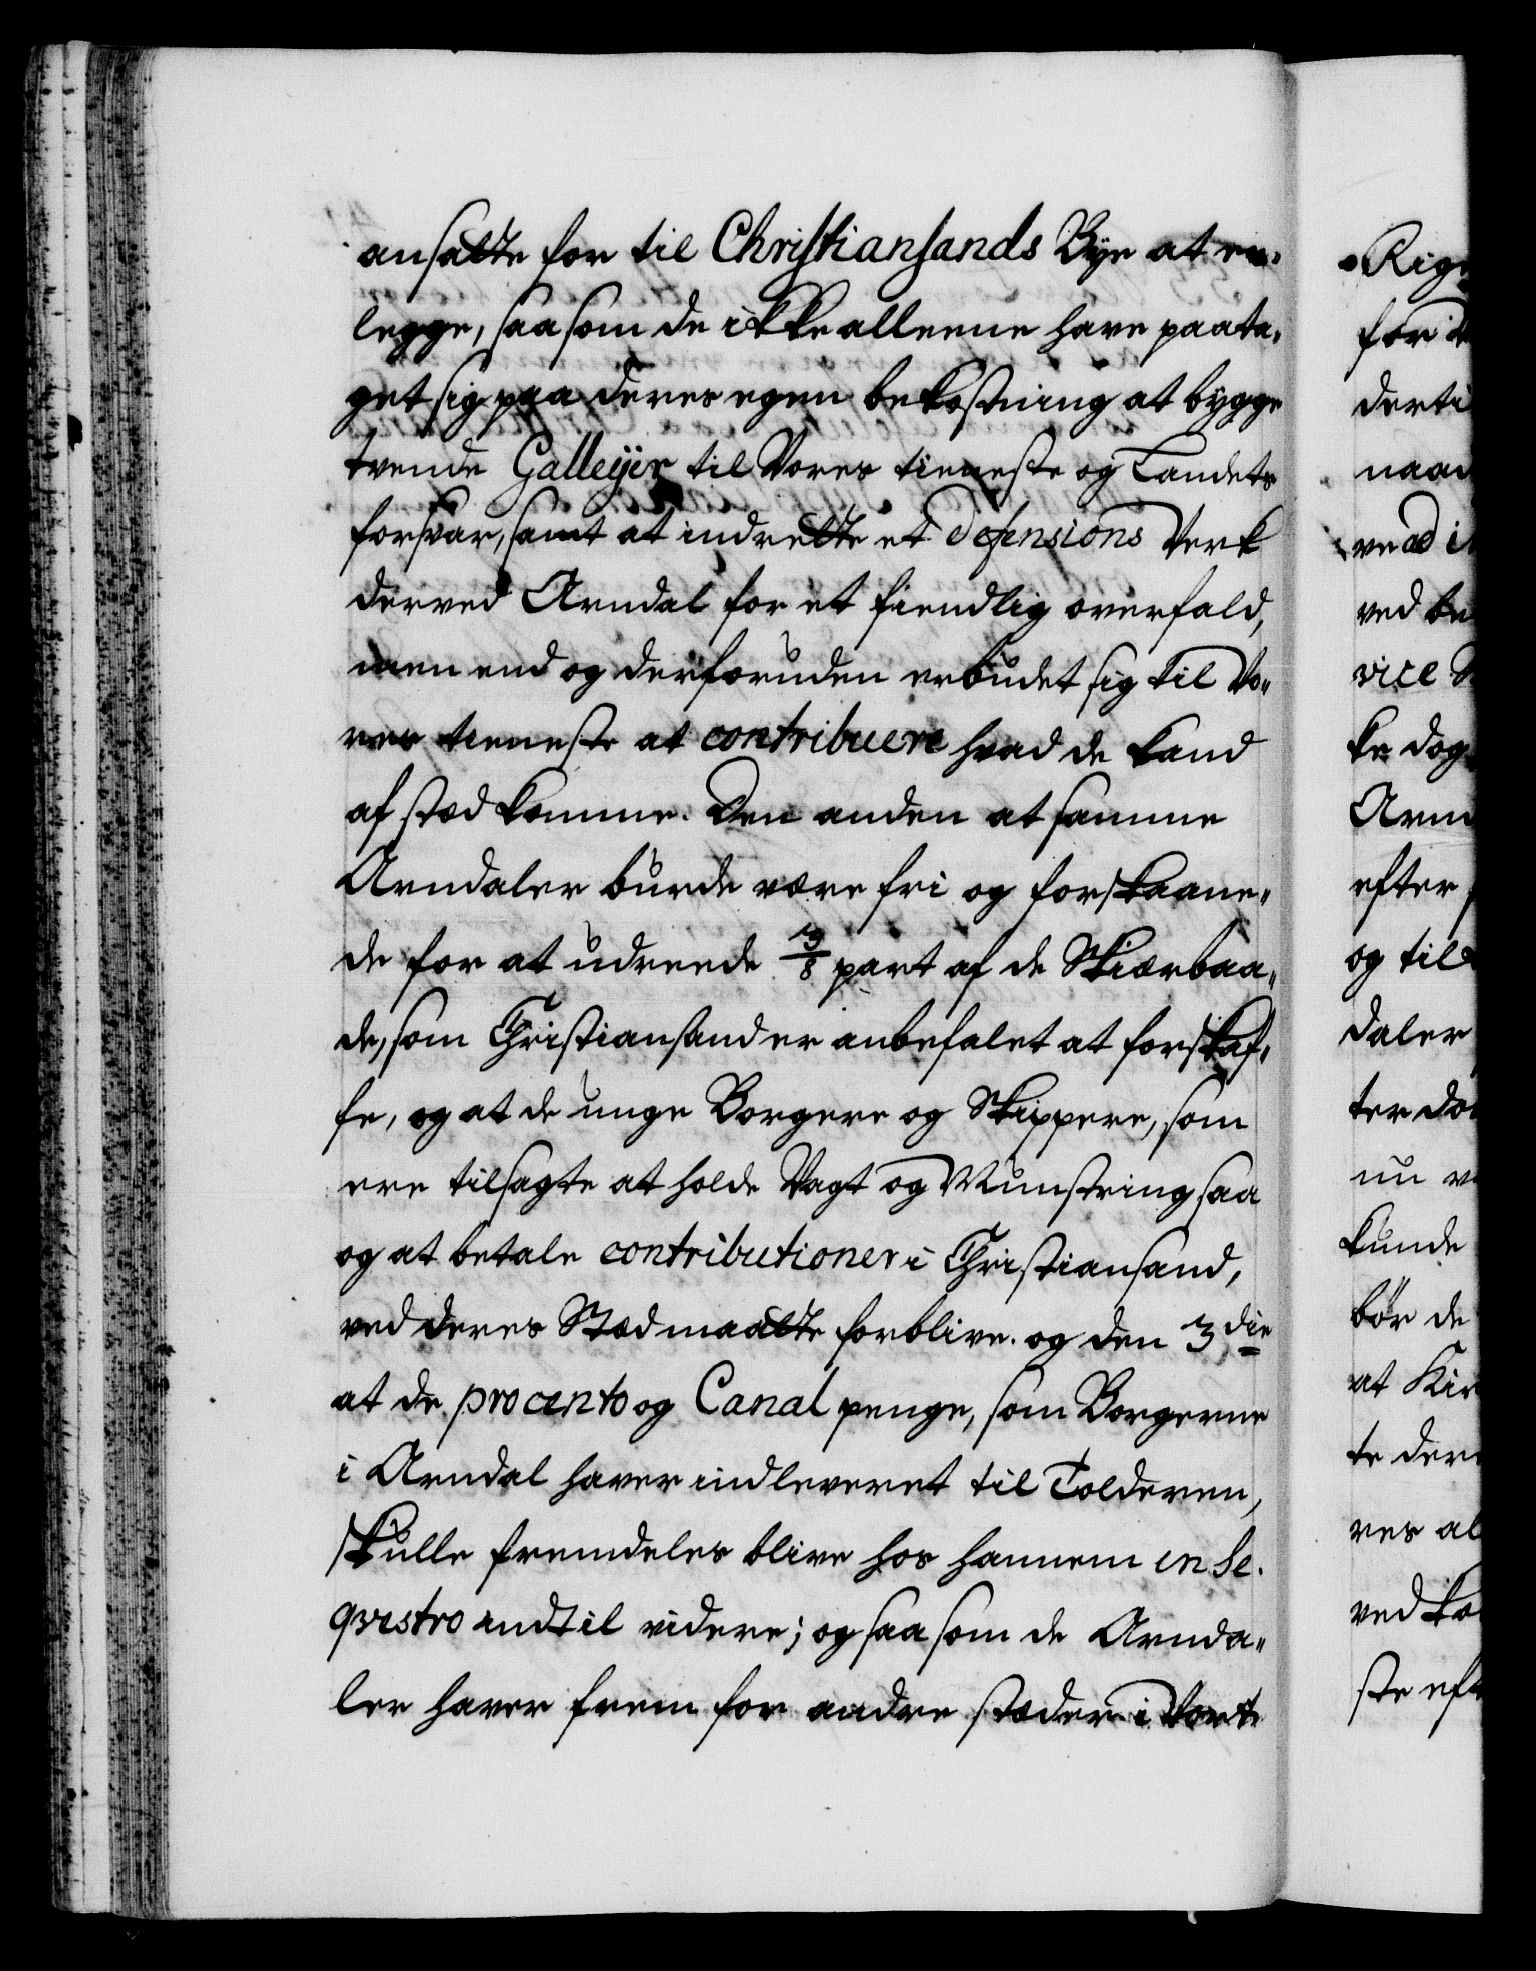 ansatte for til Christiansands Bye at er-
legge, saasom de ikke alleene have paata-
get sig paa deres egen bekostning at bygge
tvende Galleyer til Vores tieneste og Landets
forsvar, samt at indrette et defensions Verk
derved Arndal for et fiendlig overfald,
men end og derforuden erbudet sig til Vo-
res tieneste at contribuere hvad de kand
af stæd komme. Den anden at samme
Arndaler burde være fri og forskaane-
de for at udreede 3/8 part af de Skiærbaa-
de, som Christiansand er anbefalet at forskaf-
fe, og at de unge Borgere og Skippere, som
ere tilsagte at holde Vagt og Munstring saa
og at betale contributioner i Christiansand,
ved deres Stæd maatte forblive. og den 3die
at de procento og Canal penge, som Borgerne
i Arndal haver indleveret til Tolderen,
skulle fremdeles blive hos hannem in se-
qvestro indtil videre; og saasom de Arnda-
ler haver frem for andre stæder i Vort
Rig
for
derti
naad
ve ad i
ved be
vice
ke dog
Arn
efter
og til
daler
ter do
nu v
kunde
bør de
at Kir
te der
res al
ved ko
ste eft